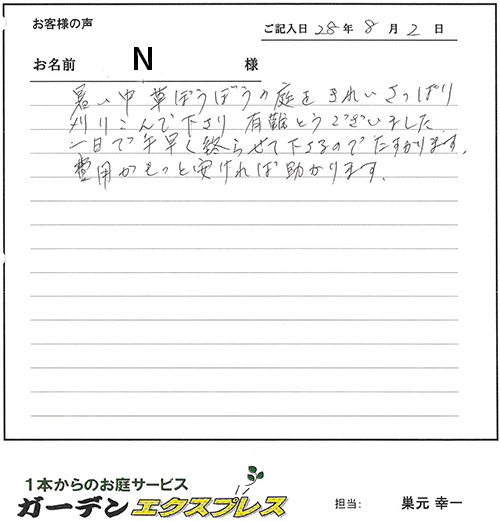 お客様の声
ご記入日 28年 8月 2日
お名前 N 様
暑い中 草ぼうぼうの庭を きれいさっぱり
刈りこんで下さり 有難とうございました
一日で手早く終らせて下さるので たすかります。
費用がもっと安ければ助かります。
1本からのお庭サービス
ガーデンエクスプレス
担当: 巣元 幸一